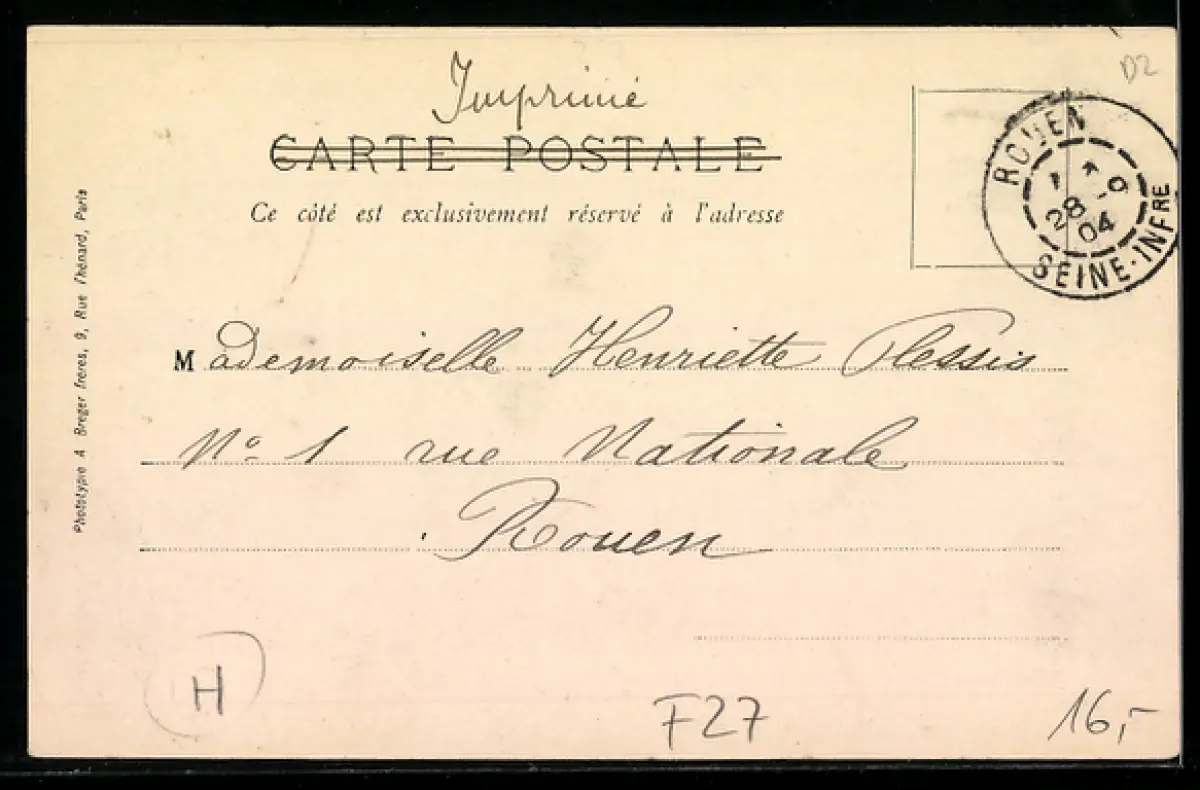 D2
Imprimé
CARTE POSTALE
Ce côté est exclusivement réservé à l'adresse
ROUEN
28 - 9
04
SEINE-INFRE
Mademoiselle Henriette Plessis
No 1 rue Nationale
Rouen
Phototypie A Breger frères, 9, Rue Thénard, Paris
H
F27
16,-